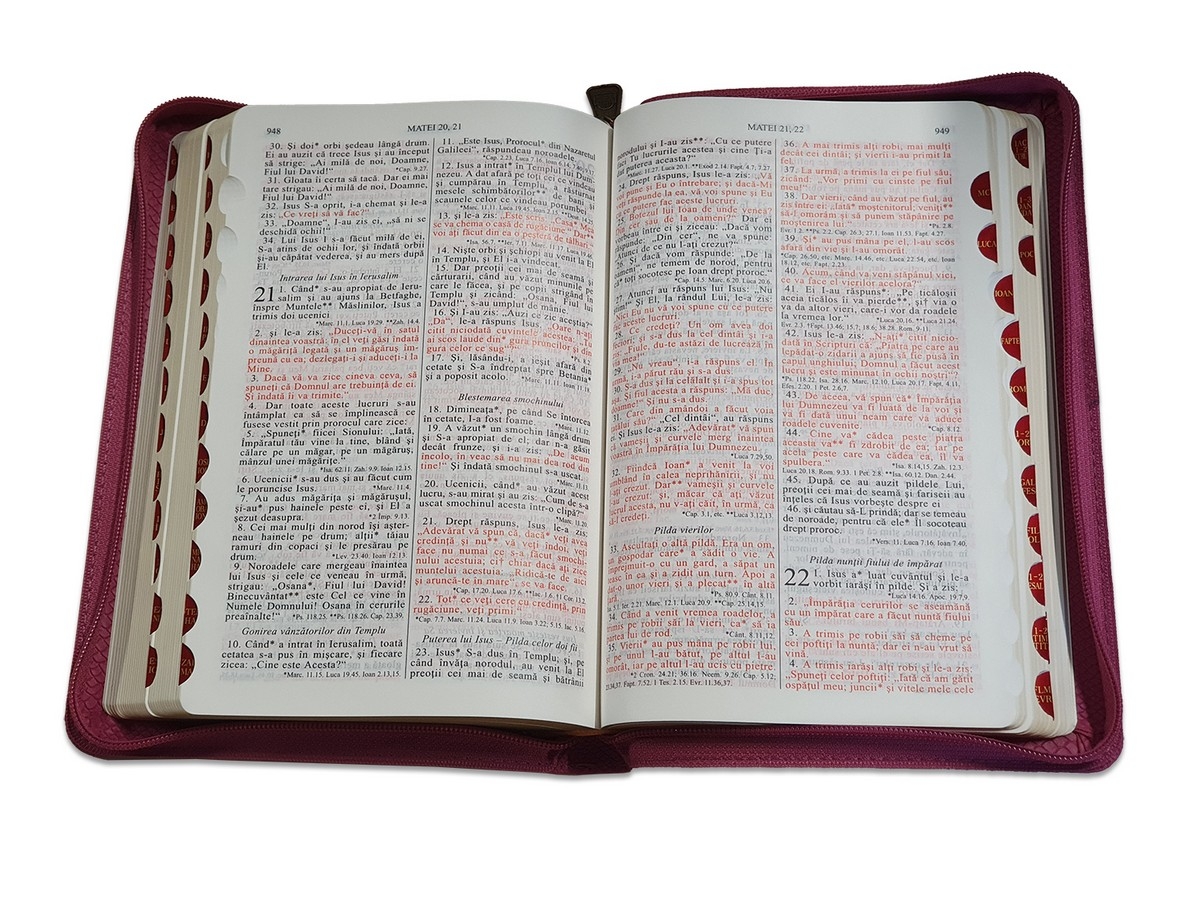 948
MATEI 20, 21
30. Și doi* orbi ședeau lângă drum.
Ei au auzit că trece Isus și au început
să strige: „Ai milă de noi, Doamne,
Fiul lui David!”
*Cap. 9.27.
31. Gloata îi certa să tacă. Dar ei mai
tare strigau: „Ai milă de noi, Doamne,
Fiul lui David!”
32. Isus S-a oprit, i-a chemat și le-a
zis: „Ce vreți să vă fac?”
33. „Doamne”, I-au zis ei, „să ni se
deschidă ochii!”
34. Lui Isus I s-a făcut milă de ei,
S-a atins de ochii lor, și îndată orbii
și-au căpătat vederea, și au mers după
El.
Intrarea lui Isus în Ierusalim
21 1. Când* s-au apropiat de Ieru-
salim și au ajuns la Betfaghe,
înspre Muntele** Măslinilor, Isus a
trimis doi ucenici
*Marc. 11.1. Luca 19.29. **Zah. 14.4.
2. și le-a zis: „Duceți-vă în satul
dinaintea voastră: în el veți găsi îndată
o măgăriță legată și un măgăruș îm-
preună cu ea; dezlegați-i și aduceți-i la
Mine.
3. Dacă vă va zice cineva ceva, să
spuneți că Domnul are trebuință de ei.
Și îndată îi va trimite.”
4. Dar toate aceste lucruri s-au
întâmplat ca să se împlinească ce
fusese vestit prin prorocul care zice:
5. „Spuneți* fiicei Sionului: „Iată,
Împăratul tău vine la tine, blând și
călare pe un măgar, pe un măgăruș,
mânzul unei măgărițe.”
*Isa. 62.11. Zah. 9.9. Ioan 12.15.
6. Ucenicii* s-au dus și au făcut cum
le poruncise Isus.
*Marc. 11.4.
7. Au adus măgărița și măgărușul,
și-au* pus hainele peste ei, și El a
șezut deasupra.
*2 Imp. 9.13.
8. Cei mai mulți din norod își așter-
neau hainele pe drum; alții* tăiau
ramuri din copaci și le presărau pe
drum.
*Lev. 23.40. Ioan 12.13.
9. Noroadele care mergeau înaintea
lui Isus și cele ce veneau în urmă,
strigau: „Osana*, Fiul lui David!
Binecuvântat** este Cel ce vine în
Numele Domnului! Osana în cerurile
preaînalte!”
*Ps. 118.25. **Ps. 118.26. Cap. 23,39.
Gonirea vânzătorilor din Templu
10. Când* a intrat în Ierusalim, toată
cetatea s-a pus în mișcare, și fiecare
zicea: „Cine este Acesta?”
*Marc. 11.15. Luca 19.45. Ioan 2.13,15
11. „Este Isus, Prorocul* din Nazaretul
Galileei”, răspundeau noroadele.
12. Isus a intrat* în Templul lui Dum-
nezeu. A dat afară pe toți cei ce vindeau
și cumpărau în Templu, a răsturnat
mesele schimbătorilor** de bani și
scaunele celor ce vindeau porumbei
13. și le-a zis: „Este scris: „Casa Mea
se va chema o casă de rugăciune” Dar voi
ați făcut din ea o peșteră de tâlhari.”
14. Niște orbi și șchiopi au venit la El
în Templu, și El i-a vindecat.
15. Dar preoții cei mai de seamă și
cărturarii, când au văzut minunile pe
care le făcea, și pe copii strigând în
Templu și zicând: „Osana, Fiul lui
David!”, s-au umplut de mânie.
16. Și I-au zis: „Auzi ce zic aceștia?”
„Da”, le-a răspuns Isus. „Oare n-ați
citit niciodată cuvintele acestea: „Tu
ai scos laude din* gura pruncilor și din
gura celor ce sug”
17. Și, lăsându-i, a ieșit afară din
cetate și S-a îndreptat spre Betania*
și a poposit acolo.
Blestemarea smochinului
18. Dimineața*, pe când Se întorcea
în cetate, I-a fost foame.
19. A văzut* un smochin lângă drum
și S-a apropiat de el; dar n-a găsit
decât frunze, și i-a zis: „De acum
încolo, în veac să nu mai dea rod din
tine!” Și îndată smochinul s-a uscat.
20. Ucenicii, când* au văzut acest
lucru, s-au mirat și au zis: „Cum de s-a
uscat smochinul acesta într-o clipă?”
*Marc. 11.20.
21. Drept răspuns, Isus le-a zis:
„Adevărat vă spun că, dacă* veți avea
credință și nu** vă veți îndoi, veți
face nu numai ce s-a făcut smochi-
nului acestuia; ci† chiar dacă ați zice
muntelui acestuia: „Ridică-te de aici
și aruncă-te în mare”, se va face.
*Cap. 17.20. Luca 17.6. **Iac. 1.6. †1 Cor. 13.2.
22. Tot* ce veți cere cu credință, prin
rugăciune, veți primi.”
*Cap. 7.7. Marc. 11.24. Luca 11.9. Ioan 3.22; 5.15. Iac. 5.16.
Puterea lui Isus – Pilda celor doi fii
23. Isus* S-a dus în Templu; și, pe
când învăța norodul, au venit la El
preoții cei mai de seamă și bătrânii
MATEI 21, 22
949
norodului și I-au zis**: „Cu ce putere
faci Tu lucrurile acestea și cine Ți-a
puterea aceasta?”
24. Drept răspuns, Isus le-a zis: „Vă
voi pune și Eu o întrebare; și dacă-Mi
veți răspunde la ea, vă voi spune și Eu
cu ce putere fac aceste lucruri.
25. Botezul lui Ioan de unde venea?
Din cer sau de la oameni?” Dar ei
vorbeau între ei și ziceau: „Dacă vom
răspunde: „Din cer”, ne va spune:
„Atunci de ce nu l-ați crezut?”
26. Și dacă vom răspunde: „De la
oameni”, ne temem de norod, pentru
că* toți socotesc pe Ioan drept proroc.”
*Cap. 14.5. Marc. 6.20. Luca 20.6.
27. Atunci au răspuns lui Isus: „Nu
Și El, la rândul Lui, le-a zis:
„Nici Eu nu vă voi spune cu ce putere
fac aceste lucruri.
28. Ce credeți? Un om avea doi
și s-a dus la cel dintâi și i-a
astăzi de lucrează în
29. „Nu vreau”, i-a răspuns el. În
urmă, i-a părut rău și s-a dus.
30. S-a dus și la celălalt și i-a spus tot
Și fiul acesta a răspuns: „Mă duc,
doamne!” Și nu s-a dus.
31. Care din amândoi a făcut voia
tatălui său?” „Cel dintâi”, au răspuns
ei. Și Isus le-a zis: „Adevărat* vă spun
vameșii și curvele merg înaintea
voastră în Împărăția lui Dumnezeu.
*Luca 7.29,50.
32. Fiindcă Ioan* a venit la voi
umblând în calea neprihănirii, și nu
l-ați crezut. Dar** vameșii și curvele
l-au crezut: și, măcar că ați văzut
lucrul acesta, nu v-ați căit, în urmă, ca
să-l credeți.
*Cap. 3.1, etc. **Luca 3.12,13.
Pilda vierilor
33. Ascultați o altă pildă. Era un om,
un gospodar care* a sădit o vie. A
împrejmuit-o cu un gard, a săpat un
teasc în ea și a zidit un turn. Apoi a
dat-o unor vieri și a plecat** în altă
34. Când a venit vremea roadelor, a
trimis pe robii săi la vieri, ca* să ia
partea lui de rod.
*Cânt. 8.11,12.
35. Vierii* au pus mâna pe robii lui,
pe unul l-au bătut, pe altul l-au
omorât, iar pe altul l-au ucis cu pietre.
36. A mai trimis alți robi, mai mulți
decât cei dintâi; și vierii i-au primit la
fel.
37. La urmă, a trimis la ei pe fiul său,
zicând: „Vor primi cu cinste pe fiul
meu!”
38. Dar vierii, când au văzut pe fiul, au
zis între ei: „Iată* moștenitorul; veniți**
să-l omorâm și să punem stăpânire pe
moștenirea lui.”
39. Și* au pus mâna pe el, l-au scos
afară din vie și l-au omorât.
40. Acum, când va veni stăpânul viei,
ce va face el vierilor acelora?”
41. Ei I-au răspuns*: „Pe ticăloșii
aceia ticălos îi va pierde**, și† via o
va da altor vieri, care-i vor da roadele
la vremea lor.”
42. Isus le-a zis: „N-ați* citit nicio-
dată în Scripturi că: „Piatra pe care au
lepădat-o zidarii a ajuns să fie pusă în
capul unghiului; Domnul a făcut acest
lucru și este minunat în ochii noștri”?
43. De aceea, vă spun că* Împărăția
lui Dumnezeu va fi luată de la voi și
va fi dată unui neam care va aduce
roadele cuvenite.
*Cap. 8.12.
44. Cine va* cădea peste piatra
aceasta va** fi zdrobit de ea; iar pe
acela peste care va cădea ea, îl va
spulbera.”
45. După ce au auzit pildele Lui,
preoții cei mai de seamă și fariseii au
înțeles că Isus vorbește despre ei
46. și căutau să-L prindă; dar se temeau
de noroade, pentru că ele* Îl socoteau
drept proroc.
*Vers. 11. Luca 7.16. Ioan 7.40.
Pilda nunții fiului de împărat
22 1. Isus a* luat cuvântul și le-a
vorbit iarăși în pilde. Și a zis:
*Luca 14.16. Apoc. 19.7,9.
2. „Împărăția cerurilor se aseamănă
cu un împărat care a făcut nuntă fiului
său.
3. A trimis pe robii săi să cheme pe
cei poftiți la nuntă; dar ei n-au vrut să
vină.
4. A trimis iarăși alți robi și le-a zis:
„Spuneți celor poftiți: „Iată că am gătit
ospățul meu; juncii* și vitele mele cele
LUCA
IOAN
FAPTE